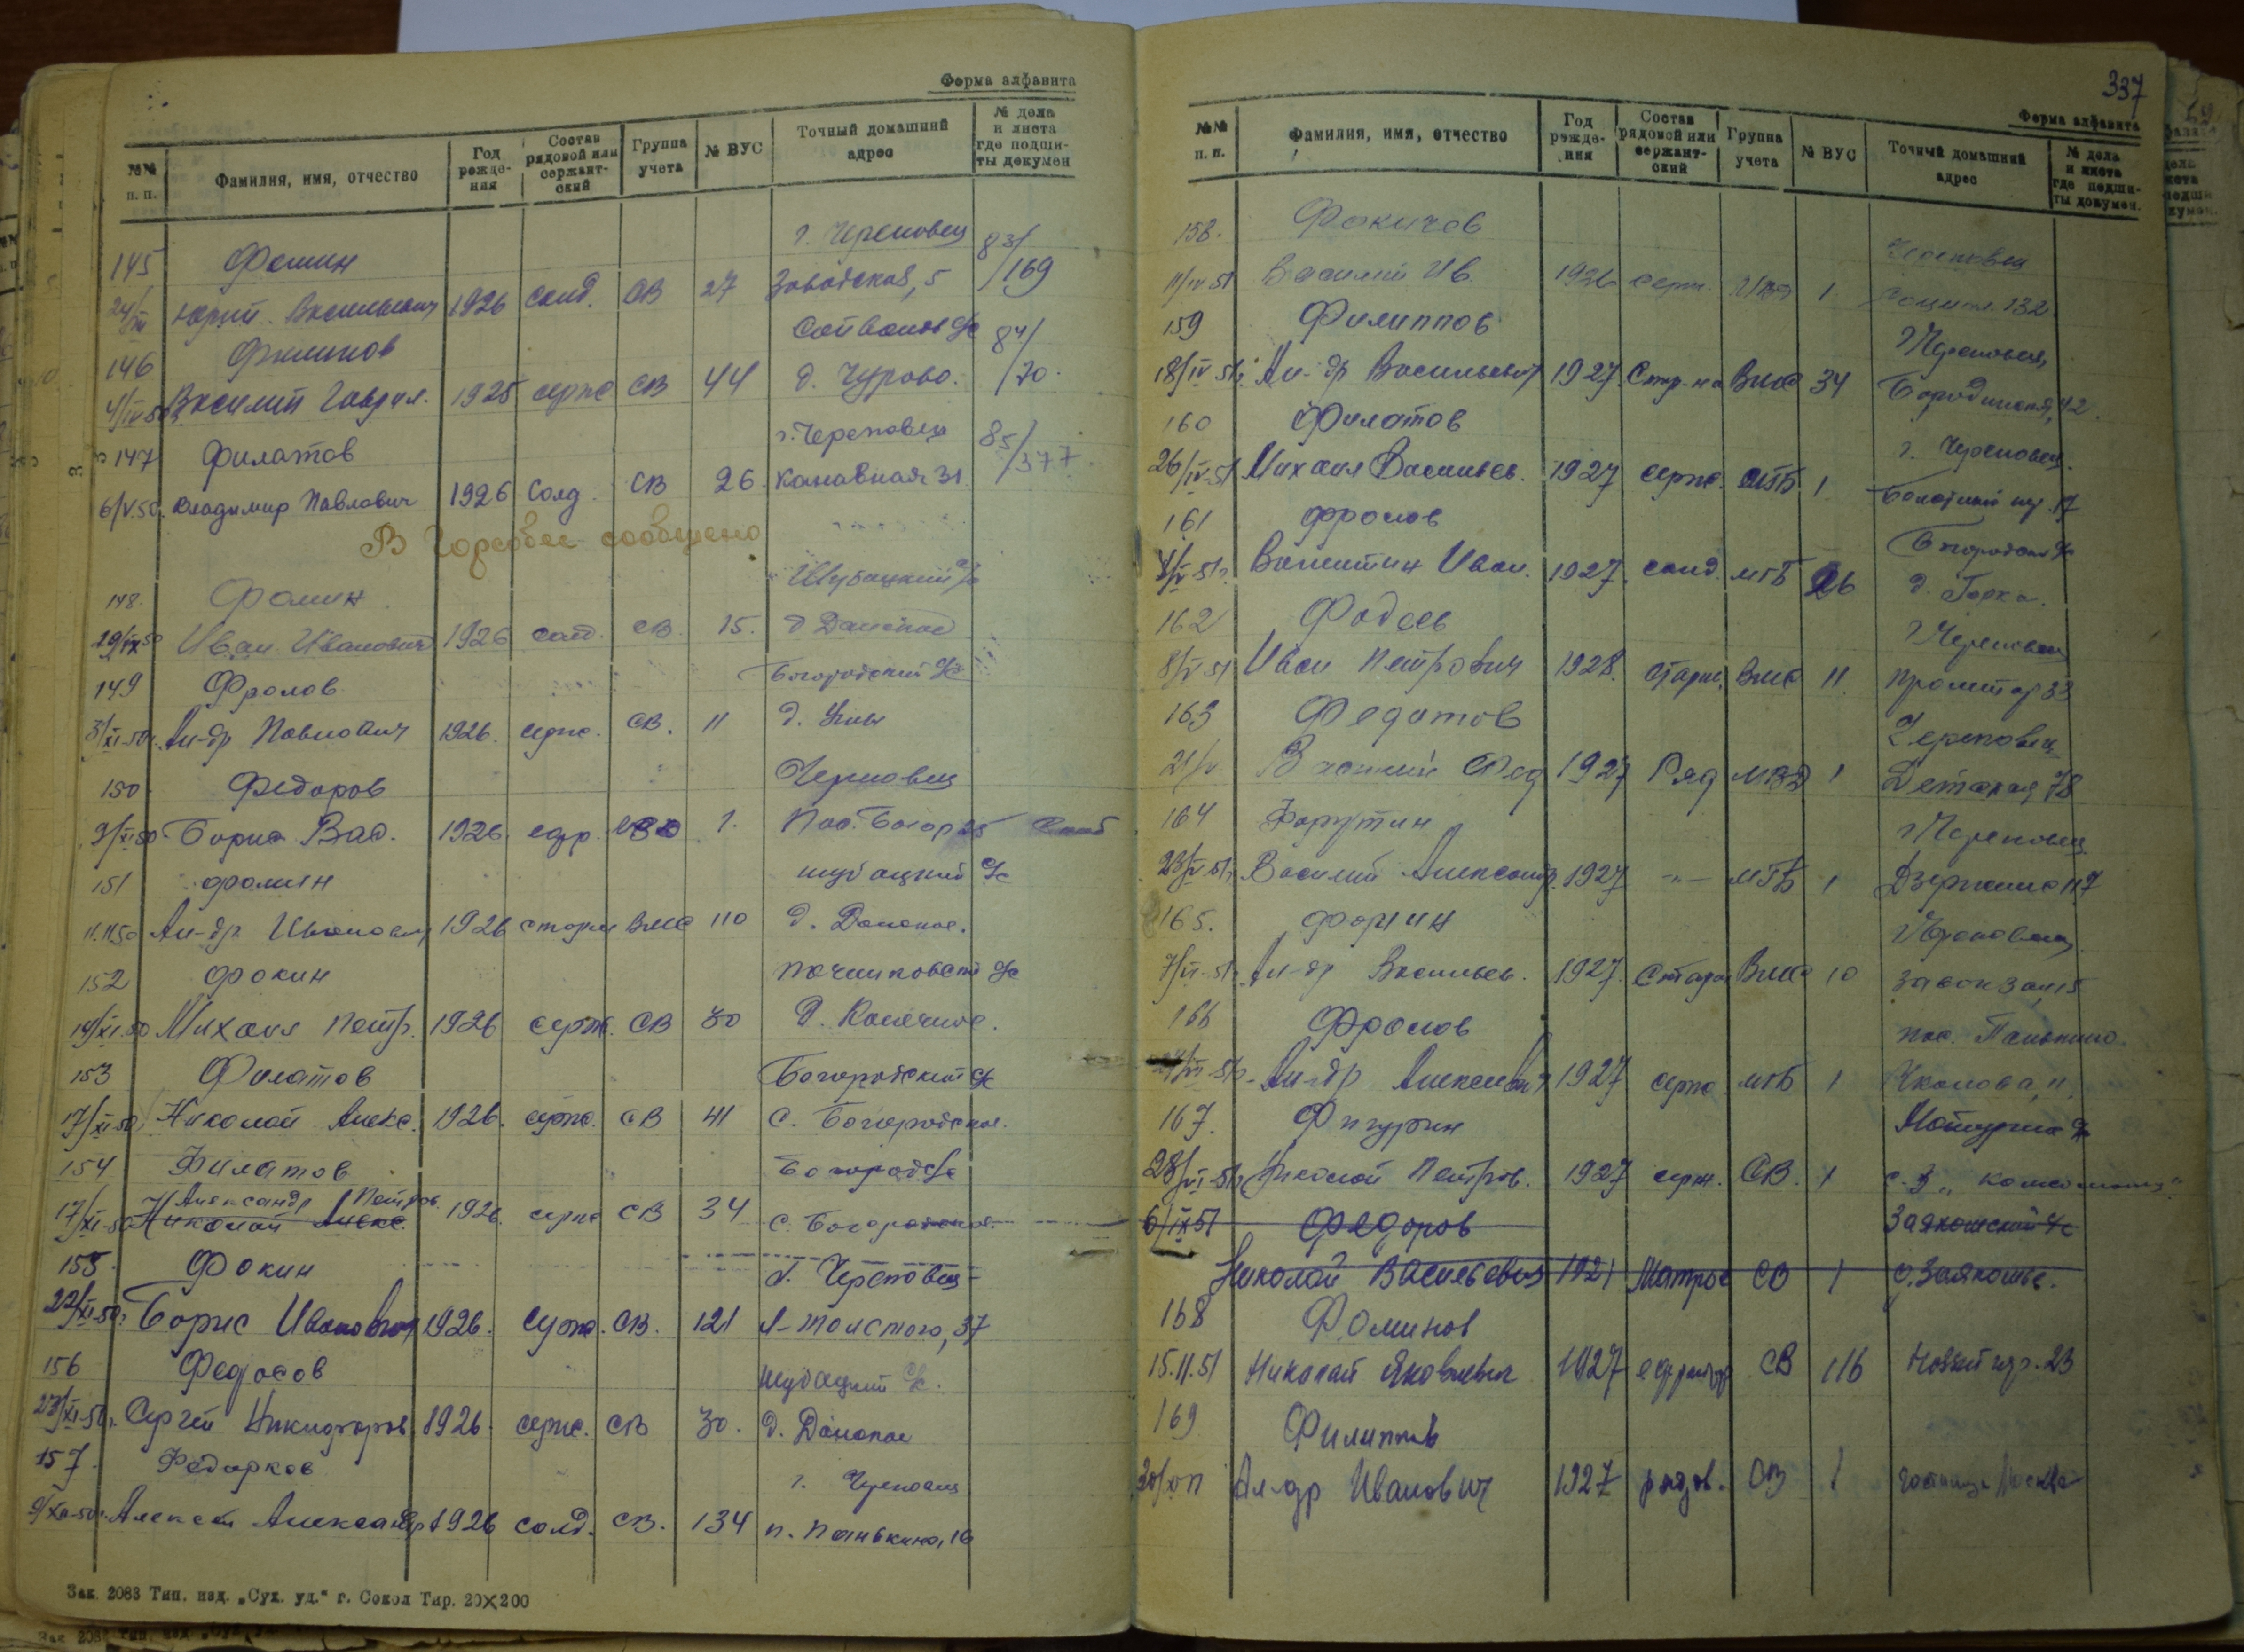 Форма алфавита
№№ п. п. Фамилия, имя, отчество Год рождения Состав рядовой или сержантский Группа учета № ВУС Точный домашний адрес № дела и листа где подшиты докумен
145 Фомин г. Череповец 83/
24/III Юрий Васильевич 1926 солд. СВ 27 Заводская, 5 /169
146 Филинов с/с 84/
4/IV 50 Василий Гаврил. 1925 серж СВ 44 д. Чурово. /70.
147 Филатов г. Череповец 85/
6/V.50. Владимир Павлович 1926 Солд. СВ 26. Канавная 31 /377.
В Горсобес сообщено
148. Фомин Шубацкий с/с
29/IX 50 Иван Иванович 1926 солд. СВ. 15. д Донское
149 Фролов Богородский с/с
3/XI-50г. Ал-др Павлович 1926. серж. СВ. 11 д.
150 Федоров Череповец
9/XI-50 Борис Вас. 1926. ефр. МВД 1. Пос. Богор 25
151 Фомин Шубацкий с/с
11.11.50 Ал-др Иванович 1926 старш ВМС 110 д. Донское.
152 Фокин Починковский с/с
14/XI.50 Михаил Петр. 1926 серж. СВ 30 д.
153 Филатов Богородский с/с
17/XI-50 Николай Алекс. 1926. серж. СВ 41 с. Богородское.
154 Филатов Богород с/с
Александр Петров.
17/XI-50 Николай Алекс. 1926. серж СВ 34 с. Богородское.
155. Фокин г. Череповец
22/XI-50г Борис Иванович 1926. серж. СВ. 121 Л-Толстого, 37
156 Федосов Шубацкий с/с.
23/XI-50г. Сергей Никифоров. 1926. серж. СВ 30. д. Донское
157. Федорков г. Череповец
9/XII-50г. Алексей Александр 1926 солд. СВ. 134 п. Панькино, 16
Зак. 2083 Тип. изд. „Сух. уд.“ г. Сокол Тир. 20×200
337
Форма алфавита
№№ п. п. Фамилия, имя, отчество Год рождения Состав рядовой или сержантский Группа учета № ВУС Точный домашний адрес № дела и листа где подшиты докумен.
158. Фокичев Череповец
11/IV 51 Василий Ив. 1926 серж. МВД 1. Социал. 132
159 Филиппов г Череповец
18/IV 51г. Ал-др Васильевич 1927. Стар-на ВМС 34 Бородинская, 42.
160 Филатов г. Череповец.
26/IV-51 Михаил Васильев. 1927 серж. МГБ 1 Болотный пер. 17
161 Фролов Богородск с/с
4/V-51г. Валентин Иван. 1927. солд. МГБ 26 д. Горка.
162 Фадеев г Череповец
8/V 51 Иван Петрович 1928. старш. ВМС 11. Пролетар 33
163 Федотов Череповец
21/V Василий Фед 1927 Ряд МВД 1 Детская 78
164 Фарутин г Череповец
23/V 51г. Василий Александр. 1927 -"- МГБ 1 Дзержинс 117
165. Форгин г Череповец.
7/VI-51г. Ал-др Васильев. 1927. Старш ВМС 10
166 Фролов пос. Панькино.
/VI-51г. Ал-др Алексеевич 1927 серж МГБ 1 Чкалова, 11.
167. Фигурин с/с
28/VI-51г Николай Петров. 1927 серж. СВ. 1
6/IX 51 Федоров Заякошский с/с
Николай Васильевич 1921 Матрос СВ 1 д. Заякошье.
168 Фоминов
15.11.51 Николай Яковлевич 1927 ефрейтор СВ 116 Новый пер. 23
169 Филиппов
Ал-др Иванович 1927 рядов. СВ 1